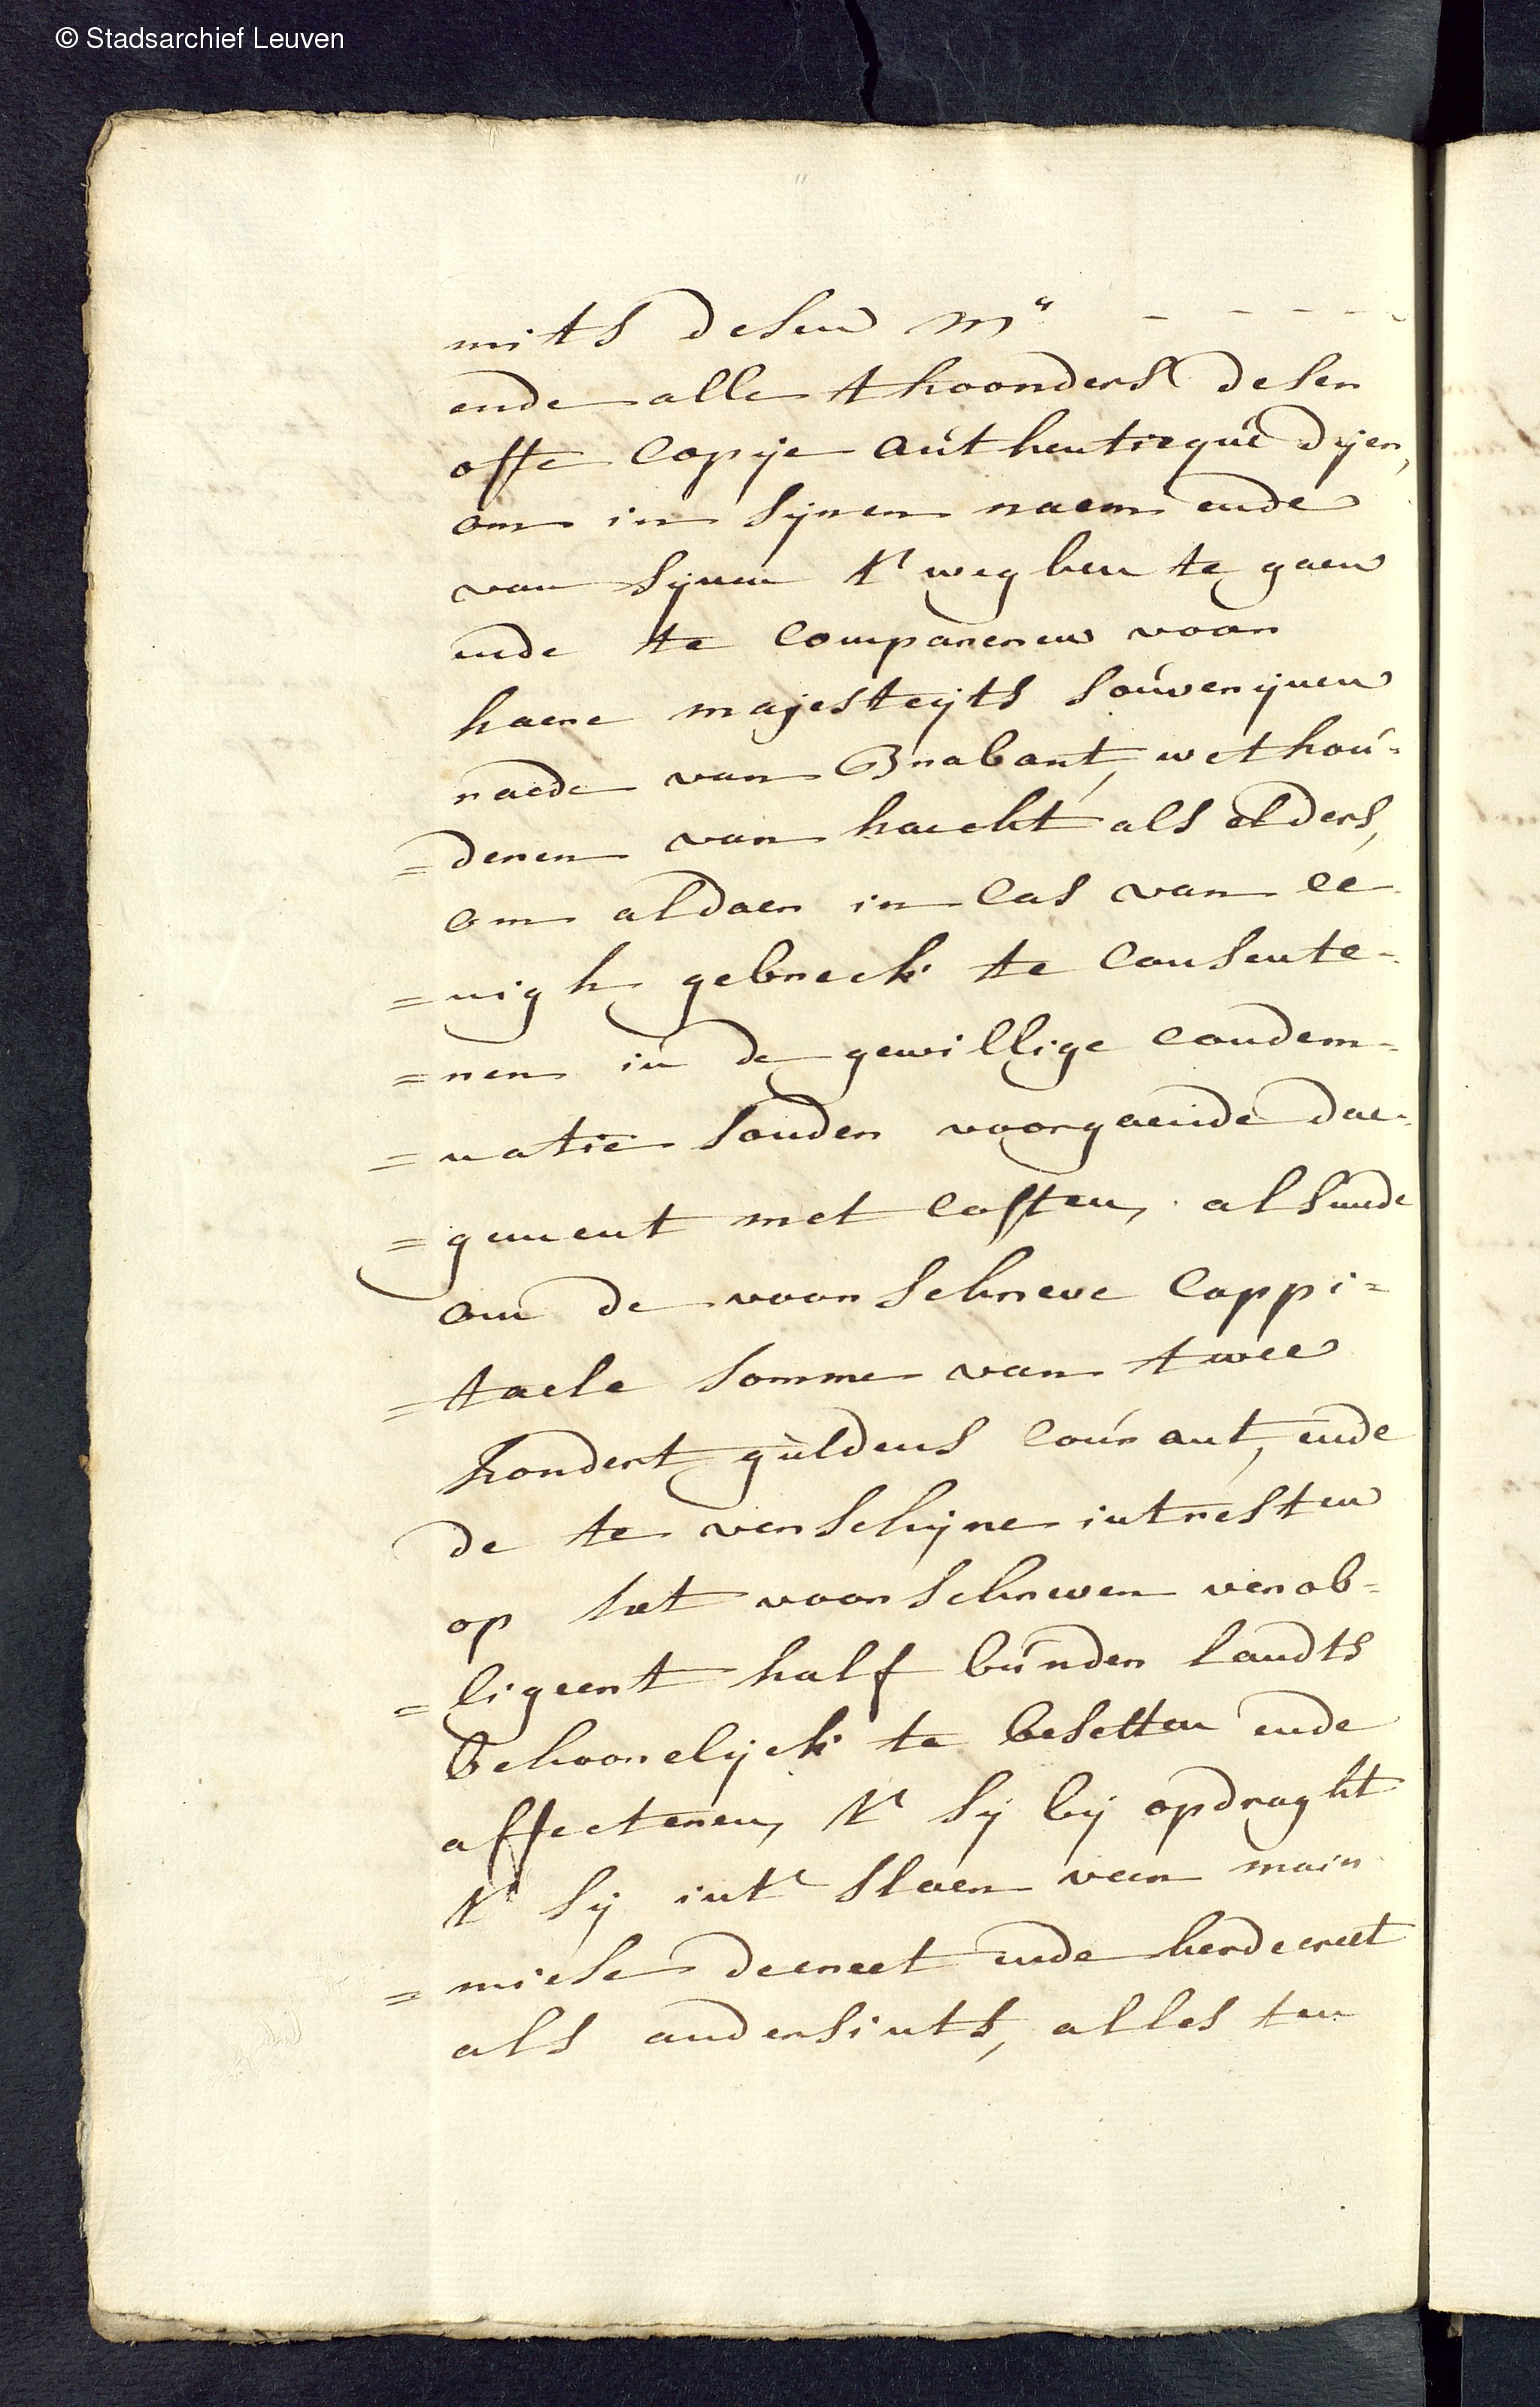 © Stadsarchief Leuven
mits desen Mr - - - - -
ende alle thoonders deser
offe copije authentieque dijer,
om in sijnen naem ende
van sijnen t' weghen te gaen
ende te compareren voor
haere majesteijts souverijnen
raede van Brabant, wethou-
=deren van haecht als elders,
om aldaer in cas van ee-
=nigh gebreck te consente-
=ren in de gewillige condem-
=natie sonder voorgaende dae-
=gement met costen, alsmede
om de voorschreve cappi=
=taele somme van twee
hondert guldens courant, ende
de te verschijne intresten
op het voorschreven verob=
=ligeert half bunder landts
behoorelijck te besetten ende
affecteren, t' sij bij opdraght
t' sij int' slaen van main
=miese decreet ende herdecreet
als andersints, alles ten